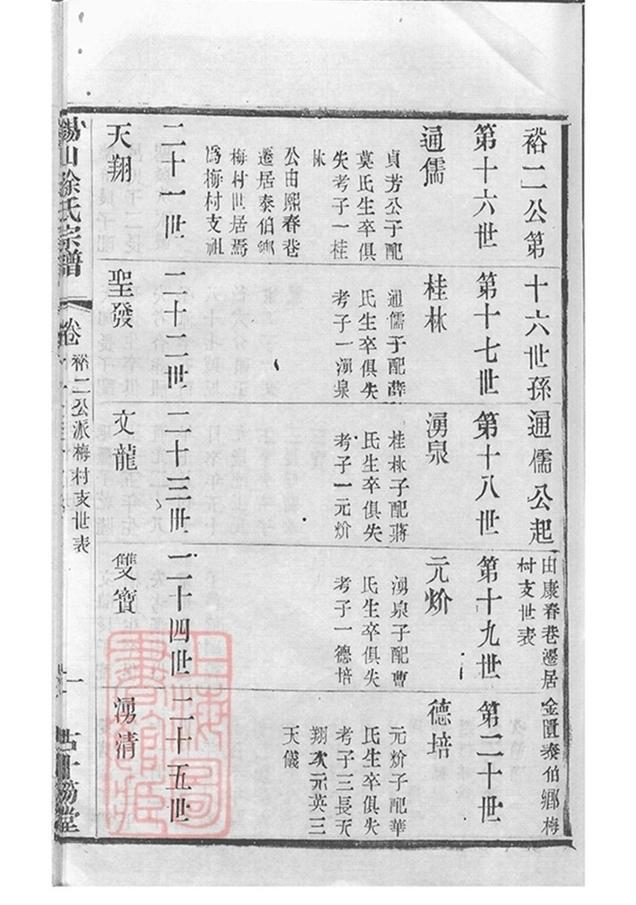 裕二公第十六世孫通儒公起
由康春巷遷居金匱泰伯鄉梅
村支世表
第十六世
第十七世
第十八世
第十九世
第二十世
通儒
貞芳公子配
莫氏生卒俱
失考子一桂
林
公由熙春巷
遷居泰伯鄉
梅村世居焉
為梅村支祖
桂林
通儒子配薛
氏生卒俱失
考子一湧泉
湧泉
桂林子配蔣
氏生卒俱失
考子一元炌
元炌
湧泉子配曹
氏生卒俱失
考子一德培
德培
元炌子配華
氏生卒俱失
考子三長天
翔次元英三
天儀
二十一世
二十二世
二十三世
二十四世
二十五世
天翔
聖發
文龍
雙寶
湧清
錫山徐氏宗譜
卷
裕二公派梅村支世表
一
上海圖
書館藏